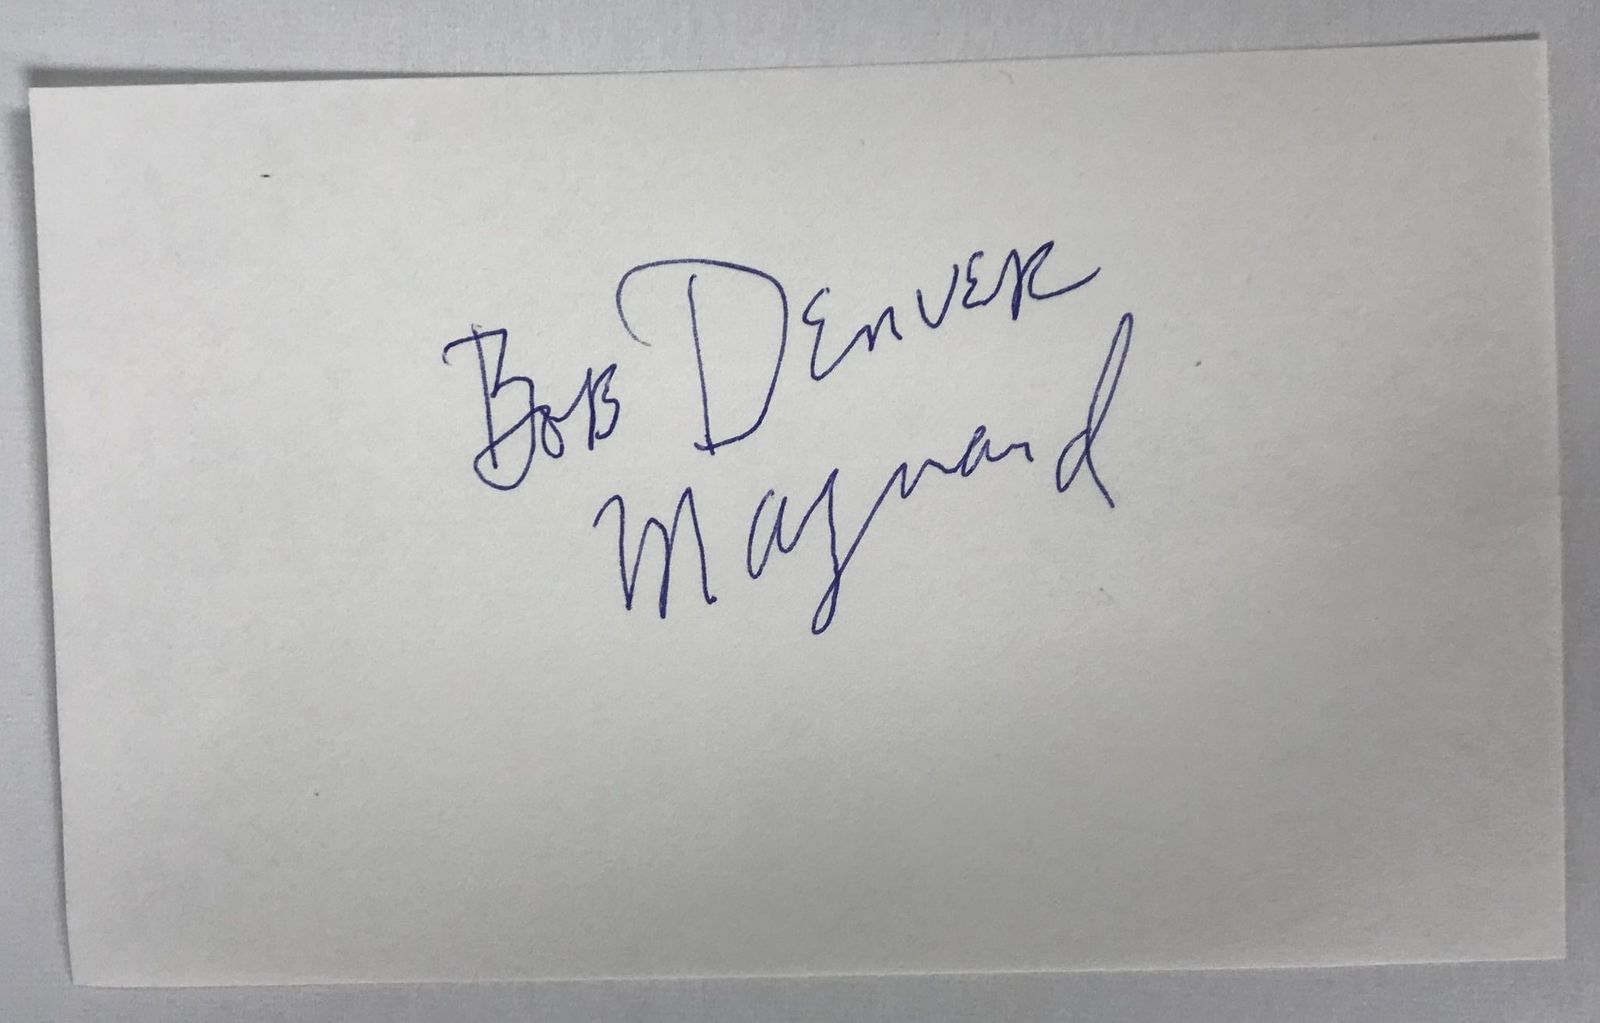 Bob Denver
Maynard